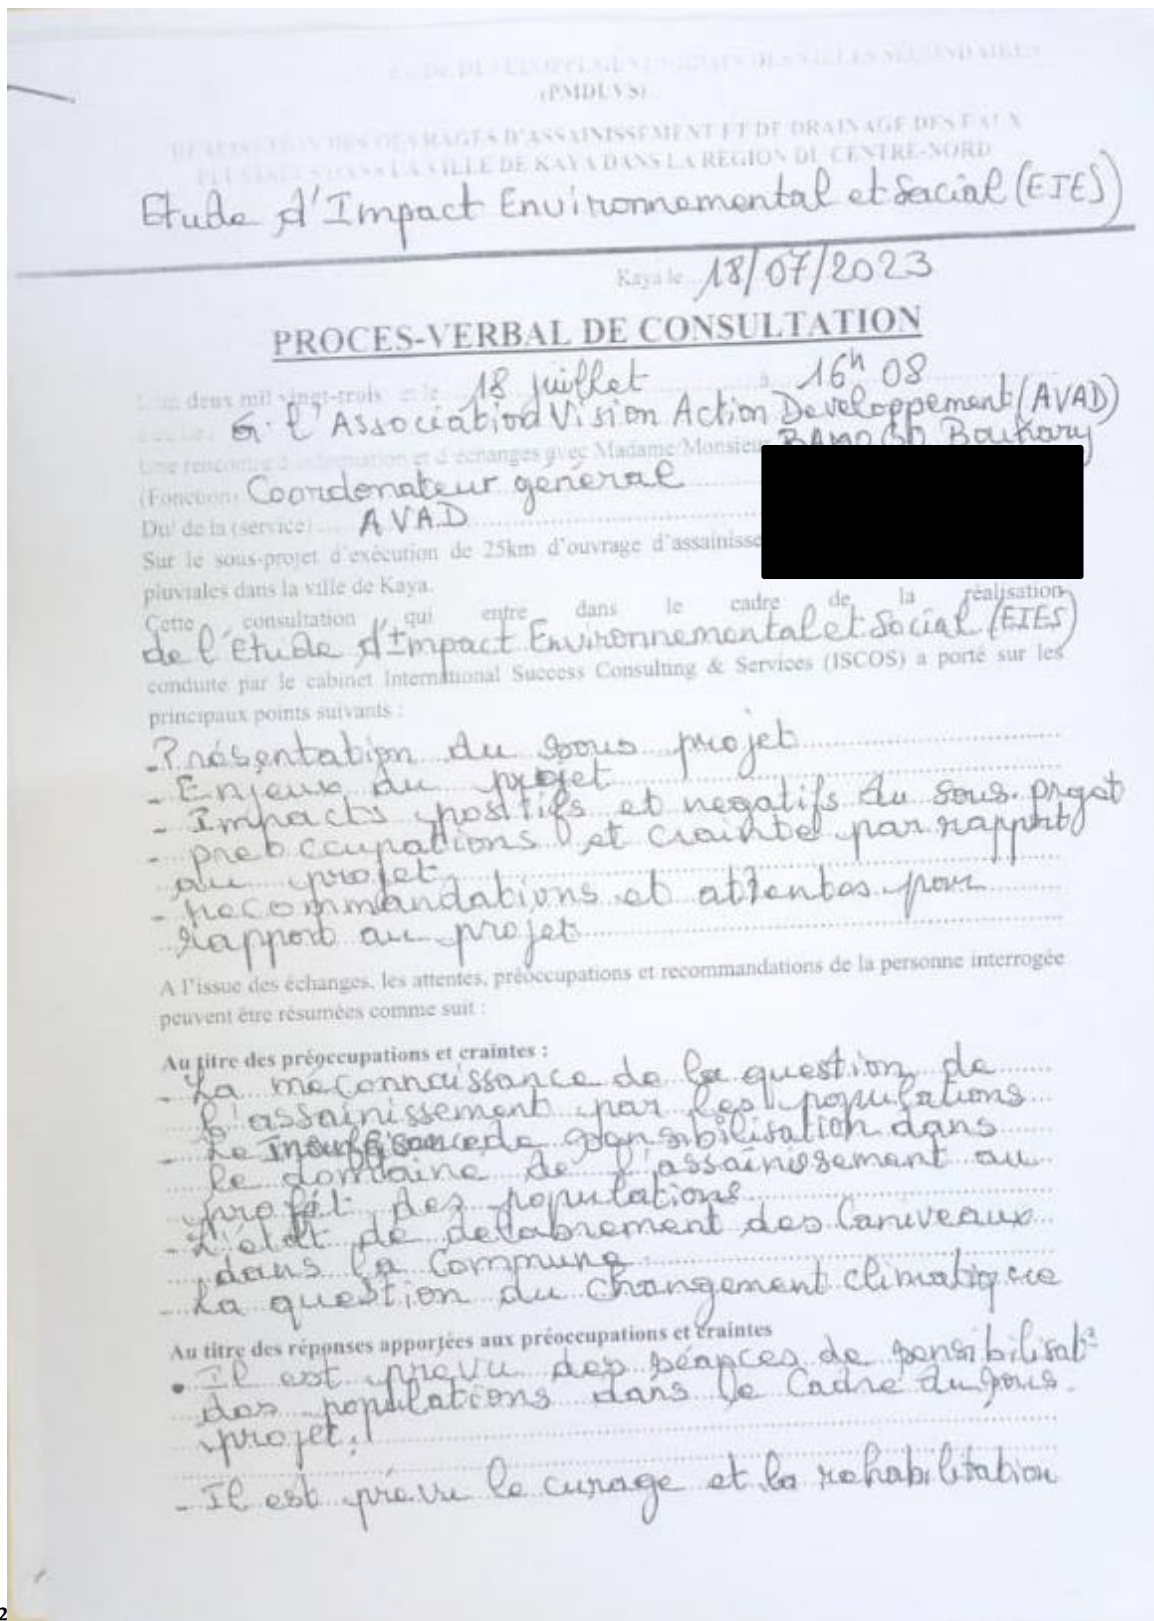 DE DEVELOPPEMENT DES VILLES SECONDAIRES
(PMDUVS)
REALISATION DES OUVRAGES D'ASSAINISSEMENT ET DE DRAINAGE DES EAUX
PLUVIALES DANS LA VILLE DE KAYA DANS LA REGION DU CENTRE-NORD
Etude d'Impact Environnemental et Social (EIES)
Kaya le 18/07/2023
PROCES-VERBAL DE CONSULTATION
L'an deux mil vingt-trois et le 18 juillet à 16h 08
à l'Association Vision Action Developpement (AVAD)
Une rencontre d'information et d'échanges avec Madame/Monsieur Boukary
(Fonction) Coordonateur général
Du/ de la (service) AVAD
Sur le sous-projet d'exécution de 25km d'ouvrage d'assainisse
pluviales dans la ville de Kaya.
Cette consultation qui entre dans le cadre de la réalisation
de l'étude d'Impact Environnemental et Social (EIES)
conduite par le cabinet International Success Consulting & Services (ISCOS) a porté sur les
principaux points suivants :
- Présentation du sous projet
- Enjeux du projet
- Impacts positifs et negatifs du sous-projet
- préoccupations et crainte par rapport
au projet
- recommandations et attentes par
rapport au projet
A l'issue des échanges, les attentes, préoccupations et recommandations de la personne interrogée
peuvent être résumées comme suit :
Au titre des préoccupations et craintes :
- La méconnaissance de la question de
l'assainissement par les populations
- Le Insuffisance de sensibilisation dans
le domaine de l'assainissement au
profit des populations
- L'etat de delabrement des Caniveaux
dans la Commune
- La question du changement climatique
Au titre des réponses apportées aux préoccupations et craintes
• Il est prévu des séances de sensibilisat°
des populations dans le Cadre du sous-
projet.
- Il est prévu le curage et la rehabilitation
2